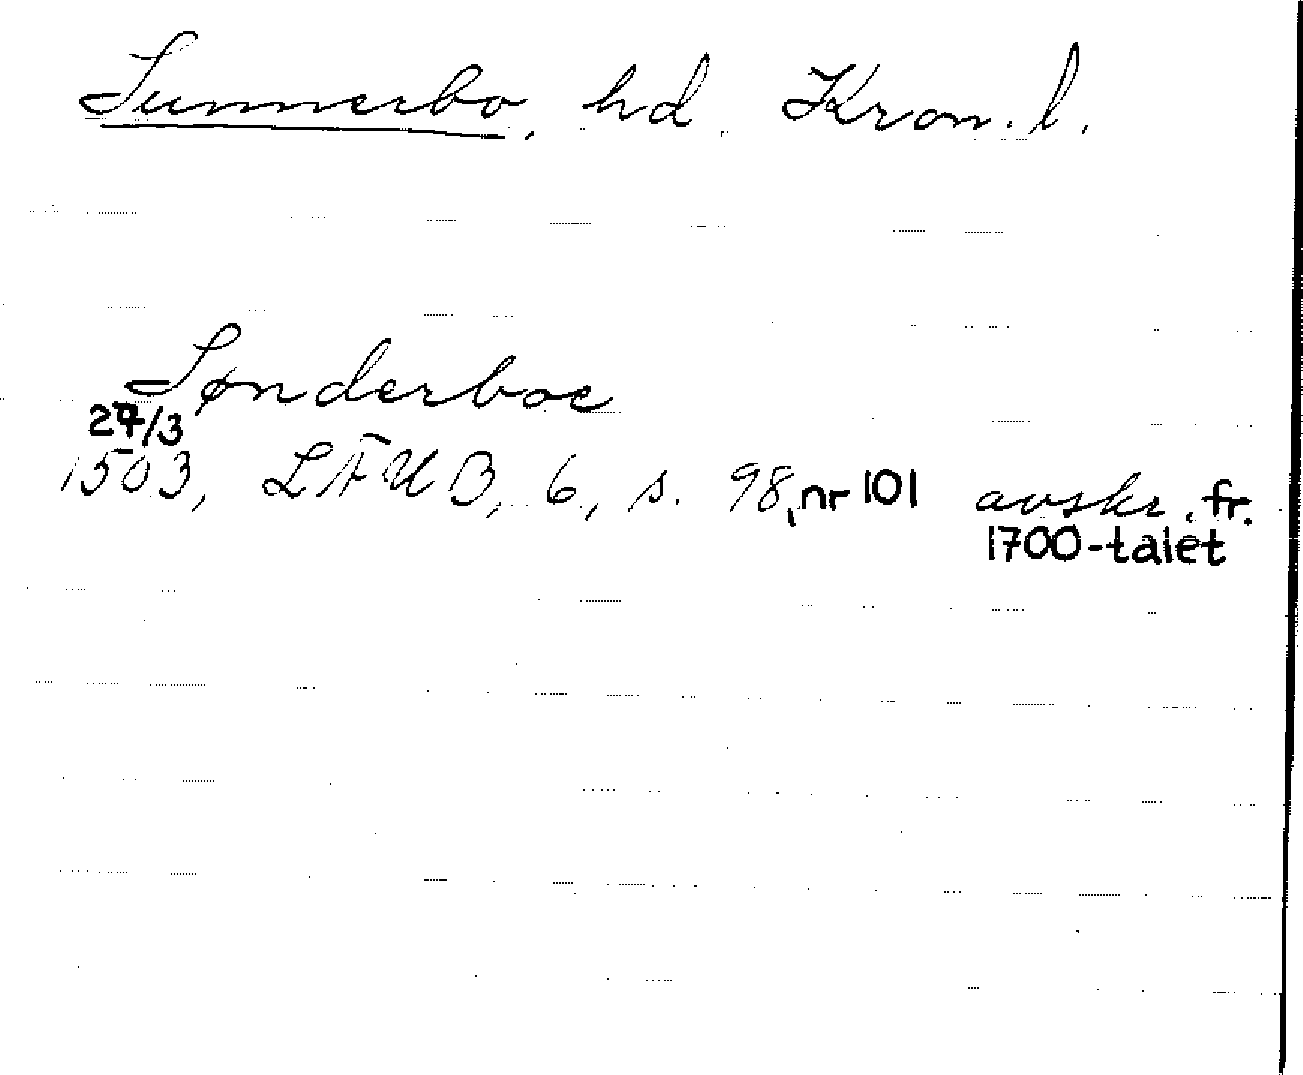 Sunnerbo, hd. Kron. l.
Sønderboe
27/3
1503, LFUB, 6, s. 98, nr 101 avskr. fr.
1700-talet